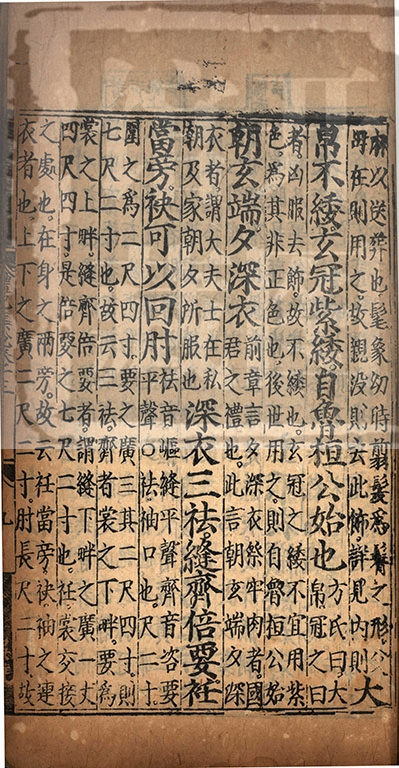 麻以送葬也髦象幼時翦髮爲鬌之形父
母在則用之故親没則去此飾詳見内則
大
帛不緌玄冠紫緌自魯桓公始也
方氏曰大
帛冠之曰
者凶服去飾故不緌也玄冠之緌不宜用紫
色爲其非正色也後世用之則自魯桓公始
朝玄端夕深衣
前章言夕深衣祭牢肉者國
君之禮也此言朝玄端夕深
衣者謂大夫士在私
朝及家朝夕所服也
深衣三袪縫齊倍要衽
當旁袂可以回肘
袪音嶇縫平聲齊音咨要
平聲○袪袖口也尺二寸
圍之爲二尺四寸要之廣三其二尺四寸則
七尺二寸也故云三袪齊者裳之下畔要爲
裳之上畔縫齊倍要者謂縫下畔之廣一丈
四尺四寸是倍要之七尺二寸也衽裳交接
之處也在身之兩旁故云衽當旁袂袖之連
衣者也上下之廣二尺二寸肘長尺二寸故